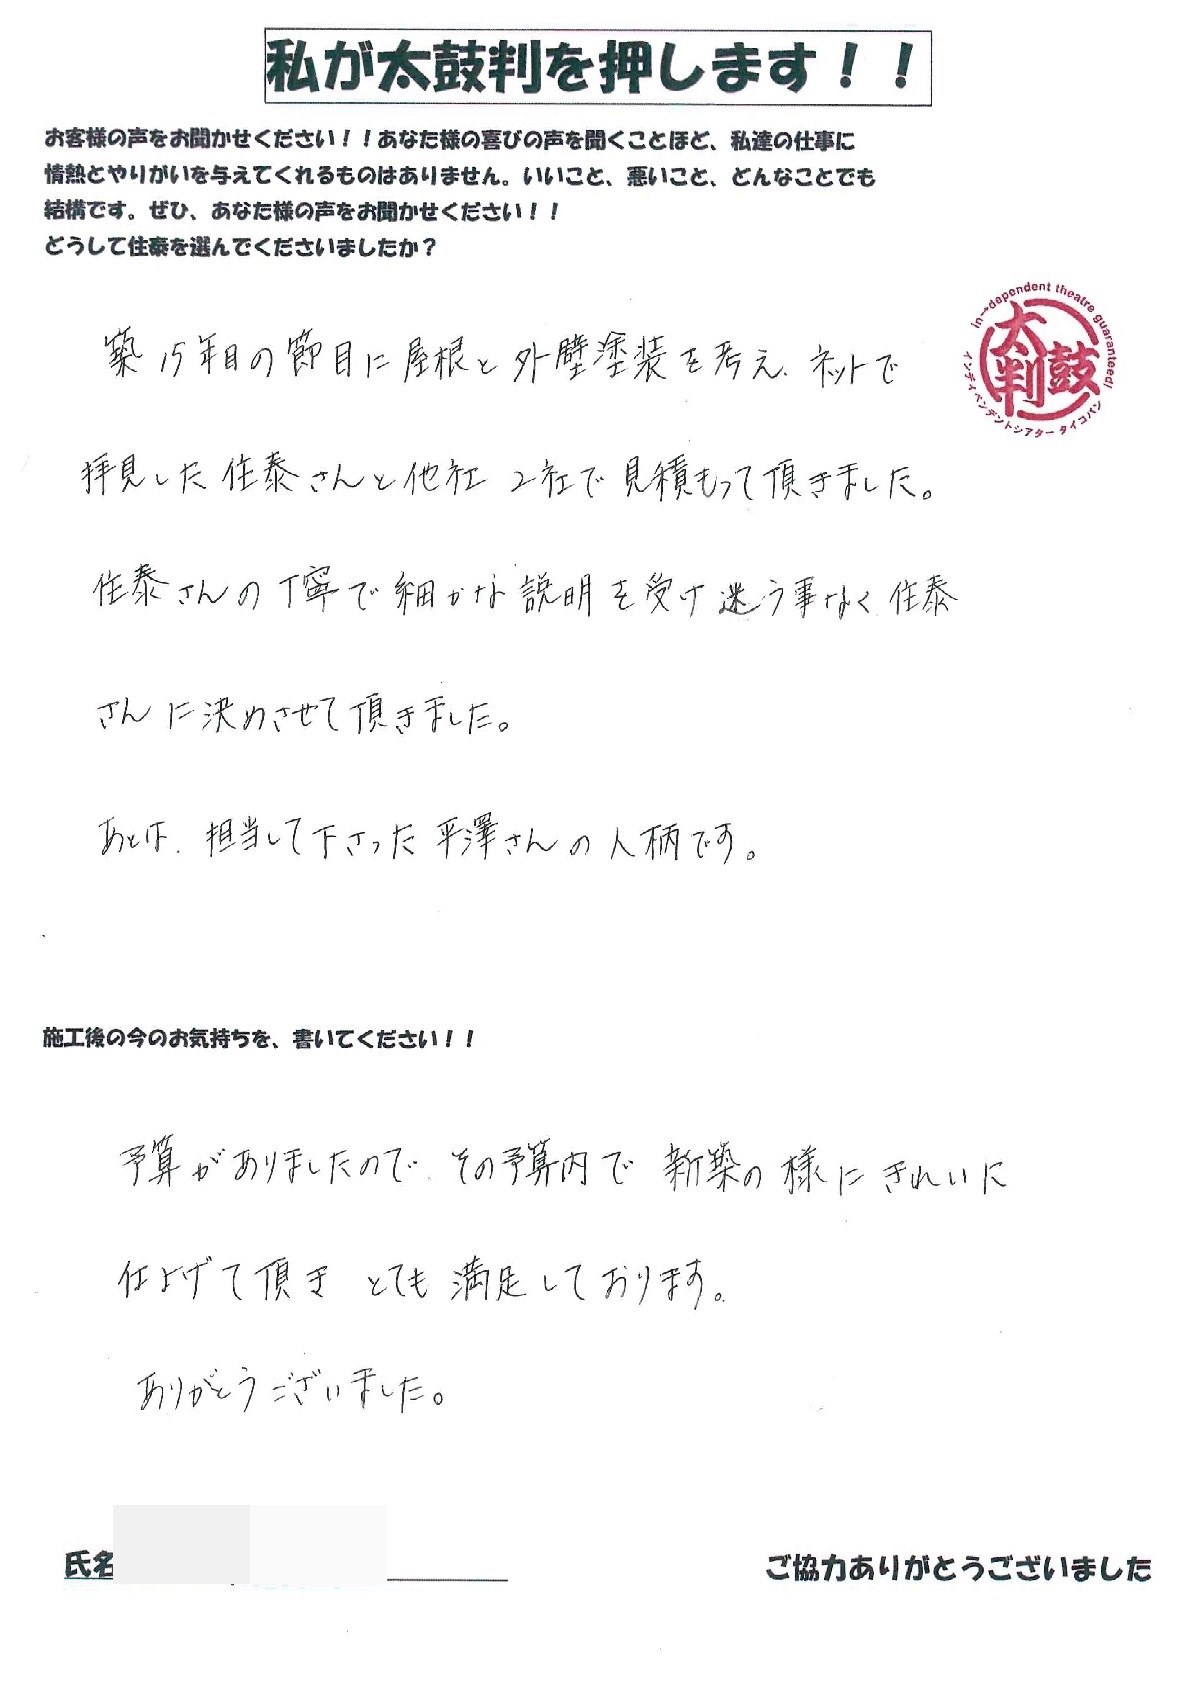 私が太鼓判を押します！！
お客様の声をお聞かせください！！あなた様の喜びの声を聞くことほど、私達の仕事に
情熱とやりがいを与えてくれるものはありません。いいこと、悪いこと、どんなことでも
結構です。ぜひ、あなた様の声をお聞かせください！！
どうして住泰を選んでくださいましたか？
in→dependent theatre guaranteed!
太鼓判
インディペンデントシアター タイコバン
築15年目の節目に屋根と外壁塗装を考え、ネットで
拝見した住泰さんと他社 2社で見積もって頂きました。
住泰さんの丁寧で細かな説明を受け迷う事なく住泰
さんに決めさせて頂きました。
あとは、担当して下さった平澤さんの人柄です。
施工後の今のお気持ちを、書いてください！！
予算がありましたので、その予算内で新築の様にきれいに
仕上げて頂き とても満足しております。
ありがとうございました。
氏名
ご協力ありがとうございました